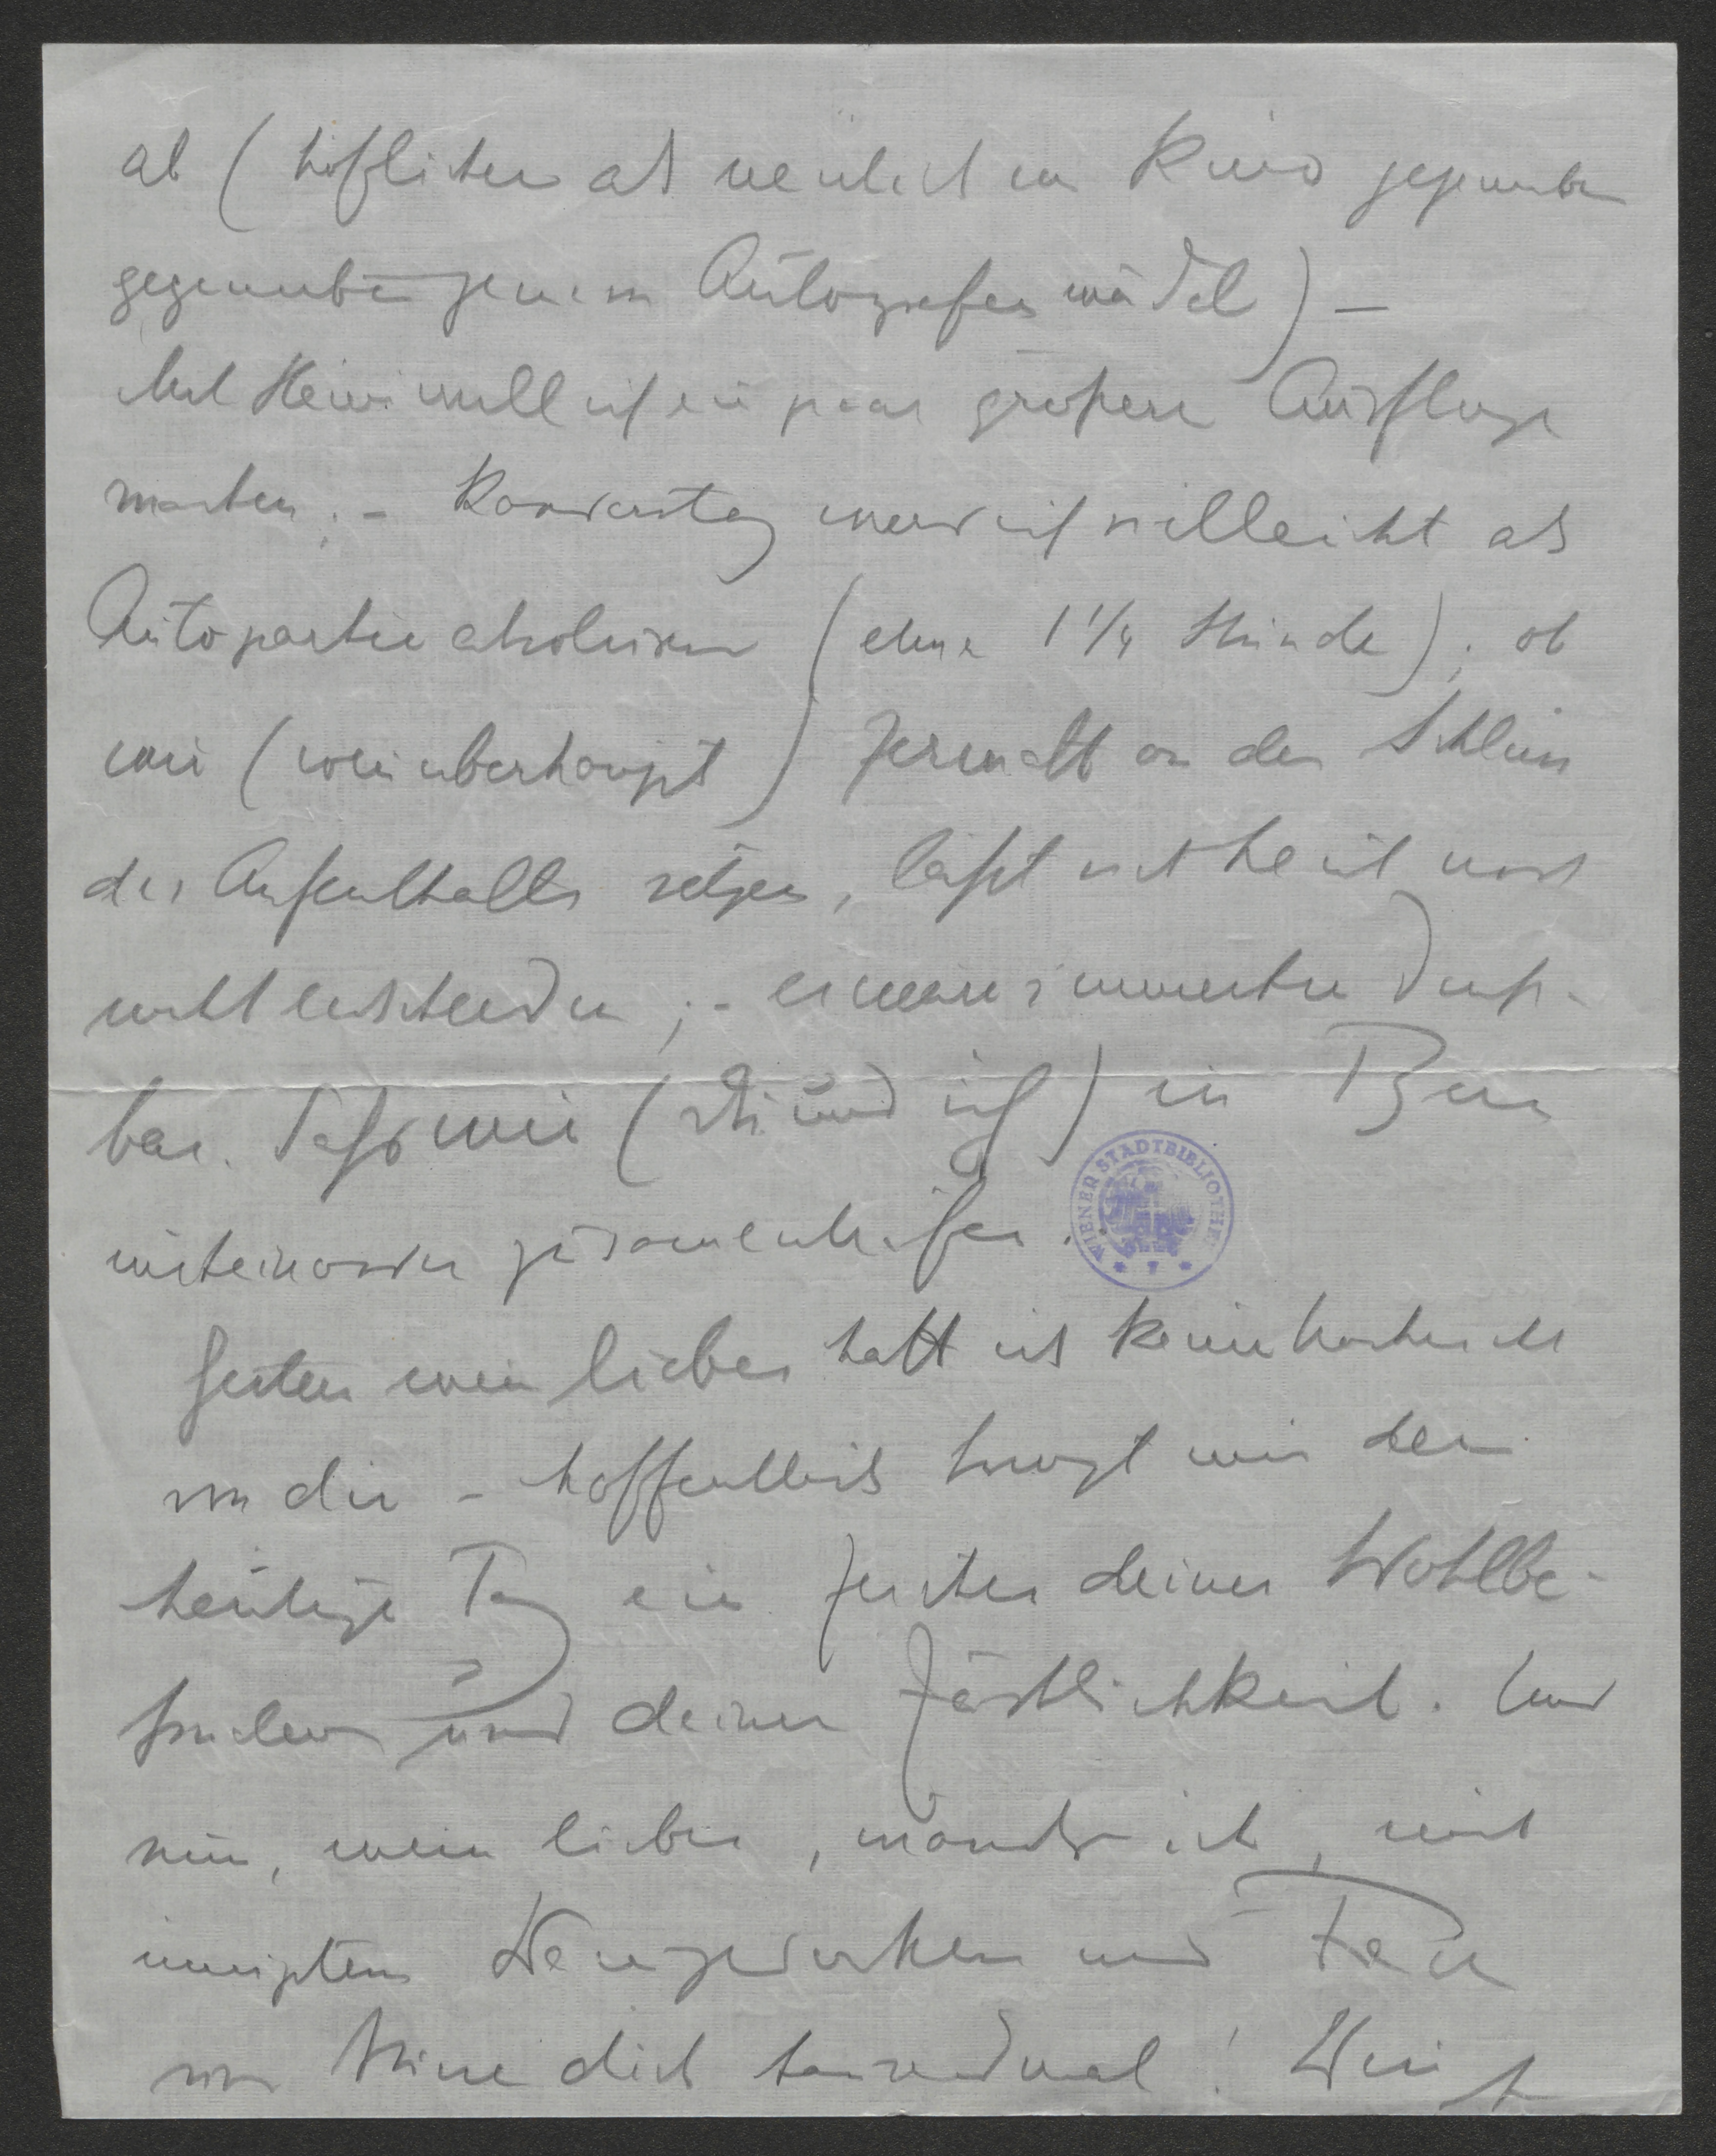 ab (höflicher als neulich im Kino gegenüber
gegenüber jenem Autografenmädel) –
Mit Heini will ich ein paar größere Ausfluge
machen; – Kandersteg werd ich vielleicht als
Autopartie absolviren (etwa 1 1/4 Stunde); ob
wir (wenn überhaupt) Zermatt an den Schluss
des Aufenthalts setzen, läßt sich heut noch
nicht entscheiden; – es wäre immerhin denk-
bar. daß wir (du und ich) in Bern
miteinander zusamentreffen.
WIENER STADTBIBLIOTHEK
Gestern mein lieber hatt ich keine Nachricht
von dir – hoffentlich bringt mir der
heutige Tag ein Zeichen deines Wohlbe-
findens und deiner Zärtlichkeit. Und
nun, mein liebes, mit
innigsten und
dich tausendmal!